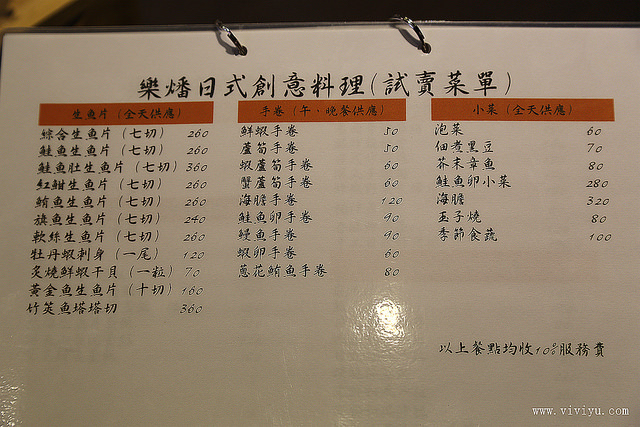 樂燔日式創意料理(試賣菜單)
生魚片(全天供應)
綜合生魚片(七切) 260
鮭魚生魚片(七切) 260
鮭魚肚生魚片(七切) 360
紅魽生魚片(七切) 260
鮪魚生魚片(七切) 260
旗魚生魚片(七切) 240
軟絲生魚片(七切) 260
牡丹蝦刺身(一尾) 120
炙燒鮮蝦干貝(一粒) 70
黃金魚生魚片(十切) 160
竹筴魚塔塔切 360
手卷(午、晚餐供應)
鮮蝦手卷 50
蘆筍手卷 50
蝦蘆筍手卷 60
蟹蘆筍手卷 60
海膽手卷 120
鮭魚卵手卷 90
鰻魚手卷 90
蝦卵手卷 60
蔥花鮪魚手卷 80
小菜(全天供應)
泡菜 60
佃煮黑豆 70
芥末章魚 80
鮭魚卵小菜 280
海膽 320
玉子燒 80
季節食蔬 100
以上餐點均收10%服務費
www.viviyu.com